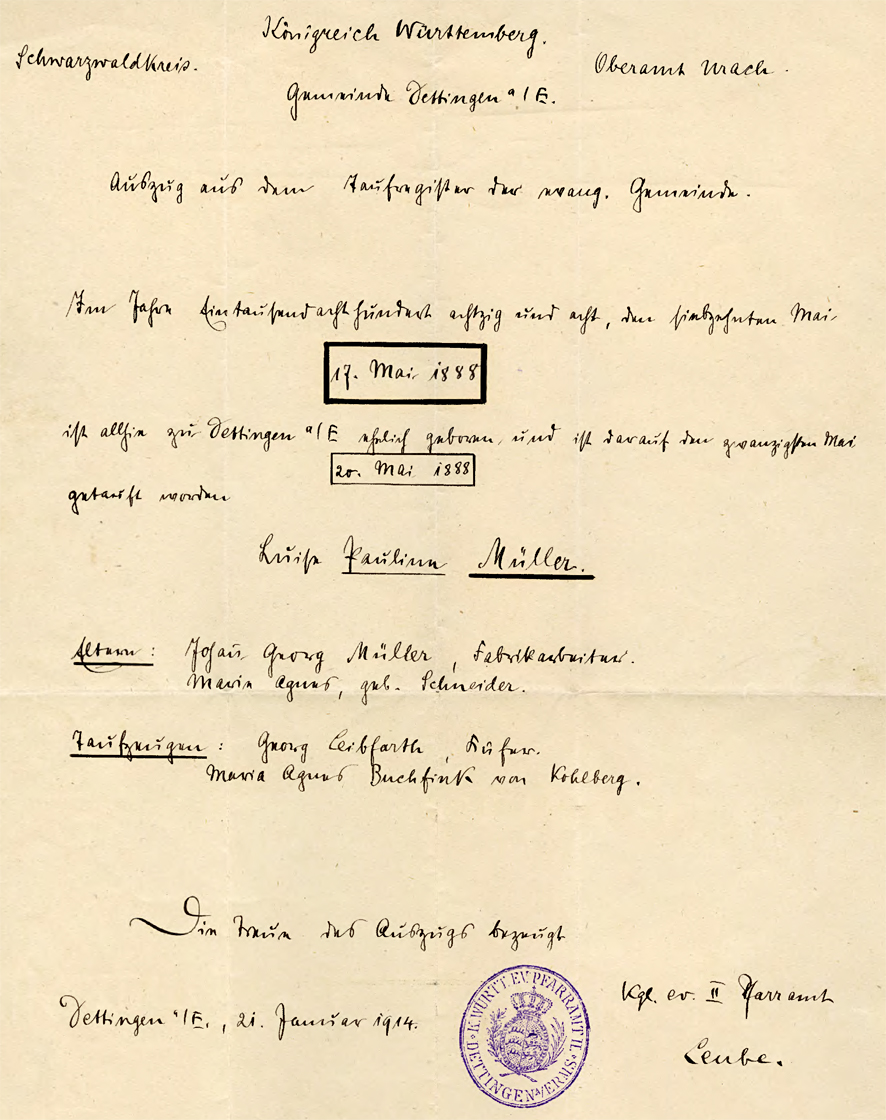 Königreich Württemberg.
Schwarzwaldkreis.
Oberamt Urach.
Gemeinde Dettingen a/E.
Auszug aus dem Taufregister der evang. Gemeinde.
Im Jahre Eintausendachthundert achtzig und acht, den siebzehnten Mai
17. Mai 1888
ist allhie zu Dettingen a/E ehelich geboren, und ist darauf den zwanzigsten Mai
20. Mai 1888
getauft worden
Luise Pauline Müller.
Eltern: Johan̄ Georg Müller, Fabrikarbeiter.
Marie Agnes, geb. Schneider.
Taufzeugen: Georg Leibfarth, Küfer.
Maria Agnes Buchfink von Kohlberg.
Die Treue des Auszugs bezeugt
Dettingen a/E., 21. Januar 1914.
K. WÜRTT. EV. PFARRAMT II. DETTINGEN A/ERMS
Kgl. ev. II Pfarramt
Leube.